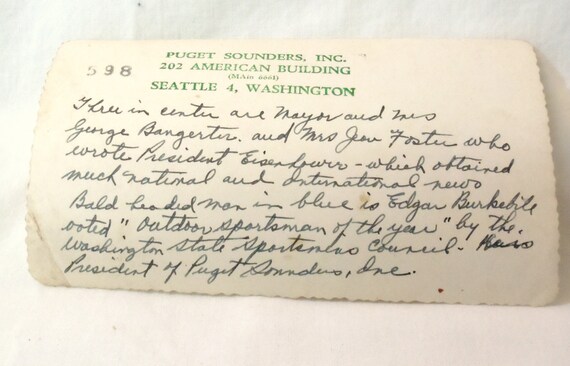 PUGET SOUNDERS, INC.
598 202 AMERICAN BUILDING
(MAin 6661)
SEATTLE 4, WASHINGTON
Three in center are Mayor and Mrs
George Bangerter. and Mrs Jew Foster who
wrote President Eisenhower - which obtained
much national and International news
Bald headed man in blue is Edgar Burkebile
voted "Outdoor Sportsman of the year" by the.
Washington State Sportsmens Council -
President of Puget Sounders, Inc.